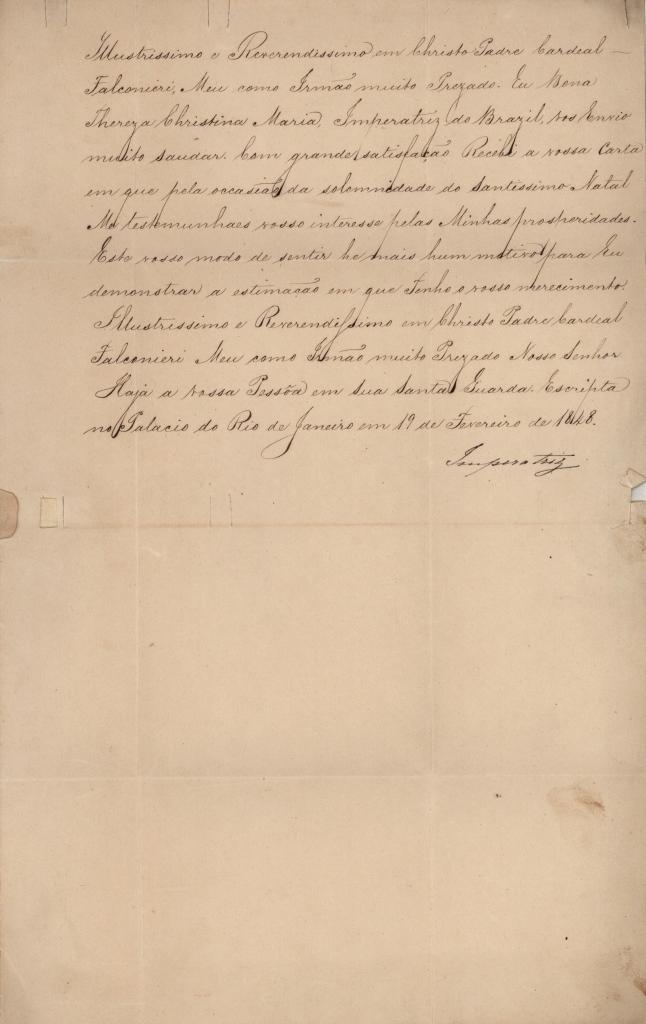 Illustrissimo e Reverendissimo em Christo Padre Cardeal —
Falconieri, Meu como Irmão muito Prezado. Eu Dona
Thereza Christina Maria, Imperatriz do Brazil, vos Envio
muito saudar. Com grande satisfação Recebi a vossa Carta
em que pela occasião da solemnidade do Santissimo Natal
Me testemunhaes vosso interesse pelas Minhas prosperidades.
Este vosso modo de sentir he mais hum motivo para Eu
demonstrar a estimação em que Tenho o vosso merecimento.
Illustrissimo e Reverendissimo em Christo Padre Cardeal
Falconieri Meu como Irmão muito Prezado Nosso Senhor
Haja a vossa Pessôa em Sua Santa Guarda. Escripta
no Palacio do Rio de Janeiro em 19 de Fevereiro de 1848.
Imperatriz